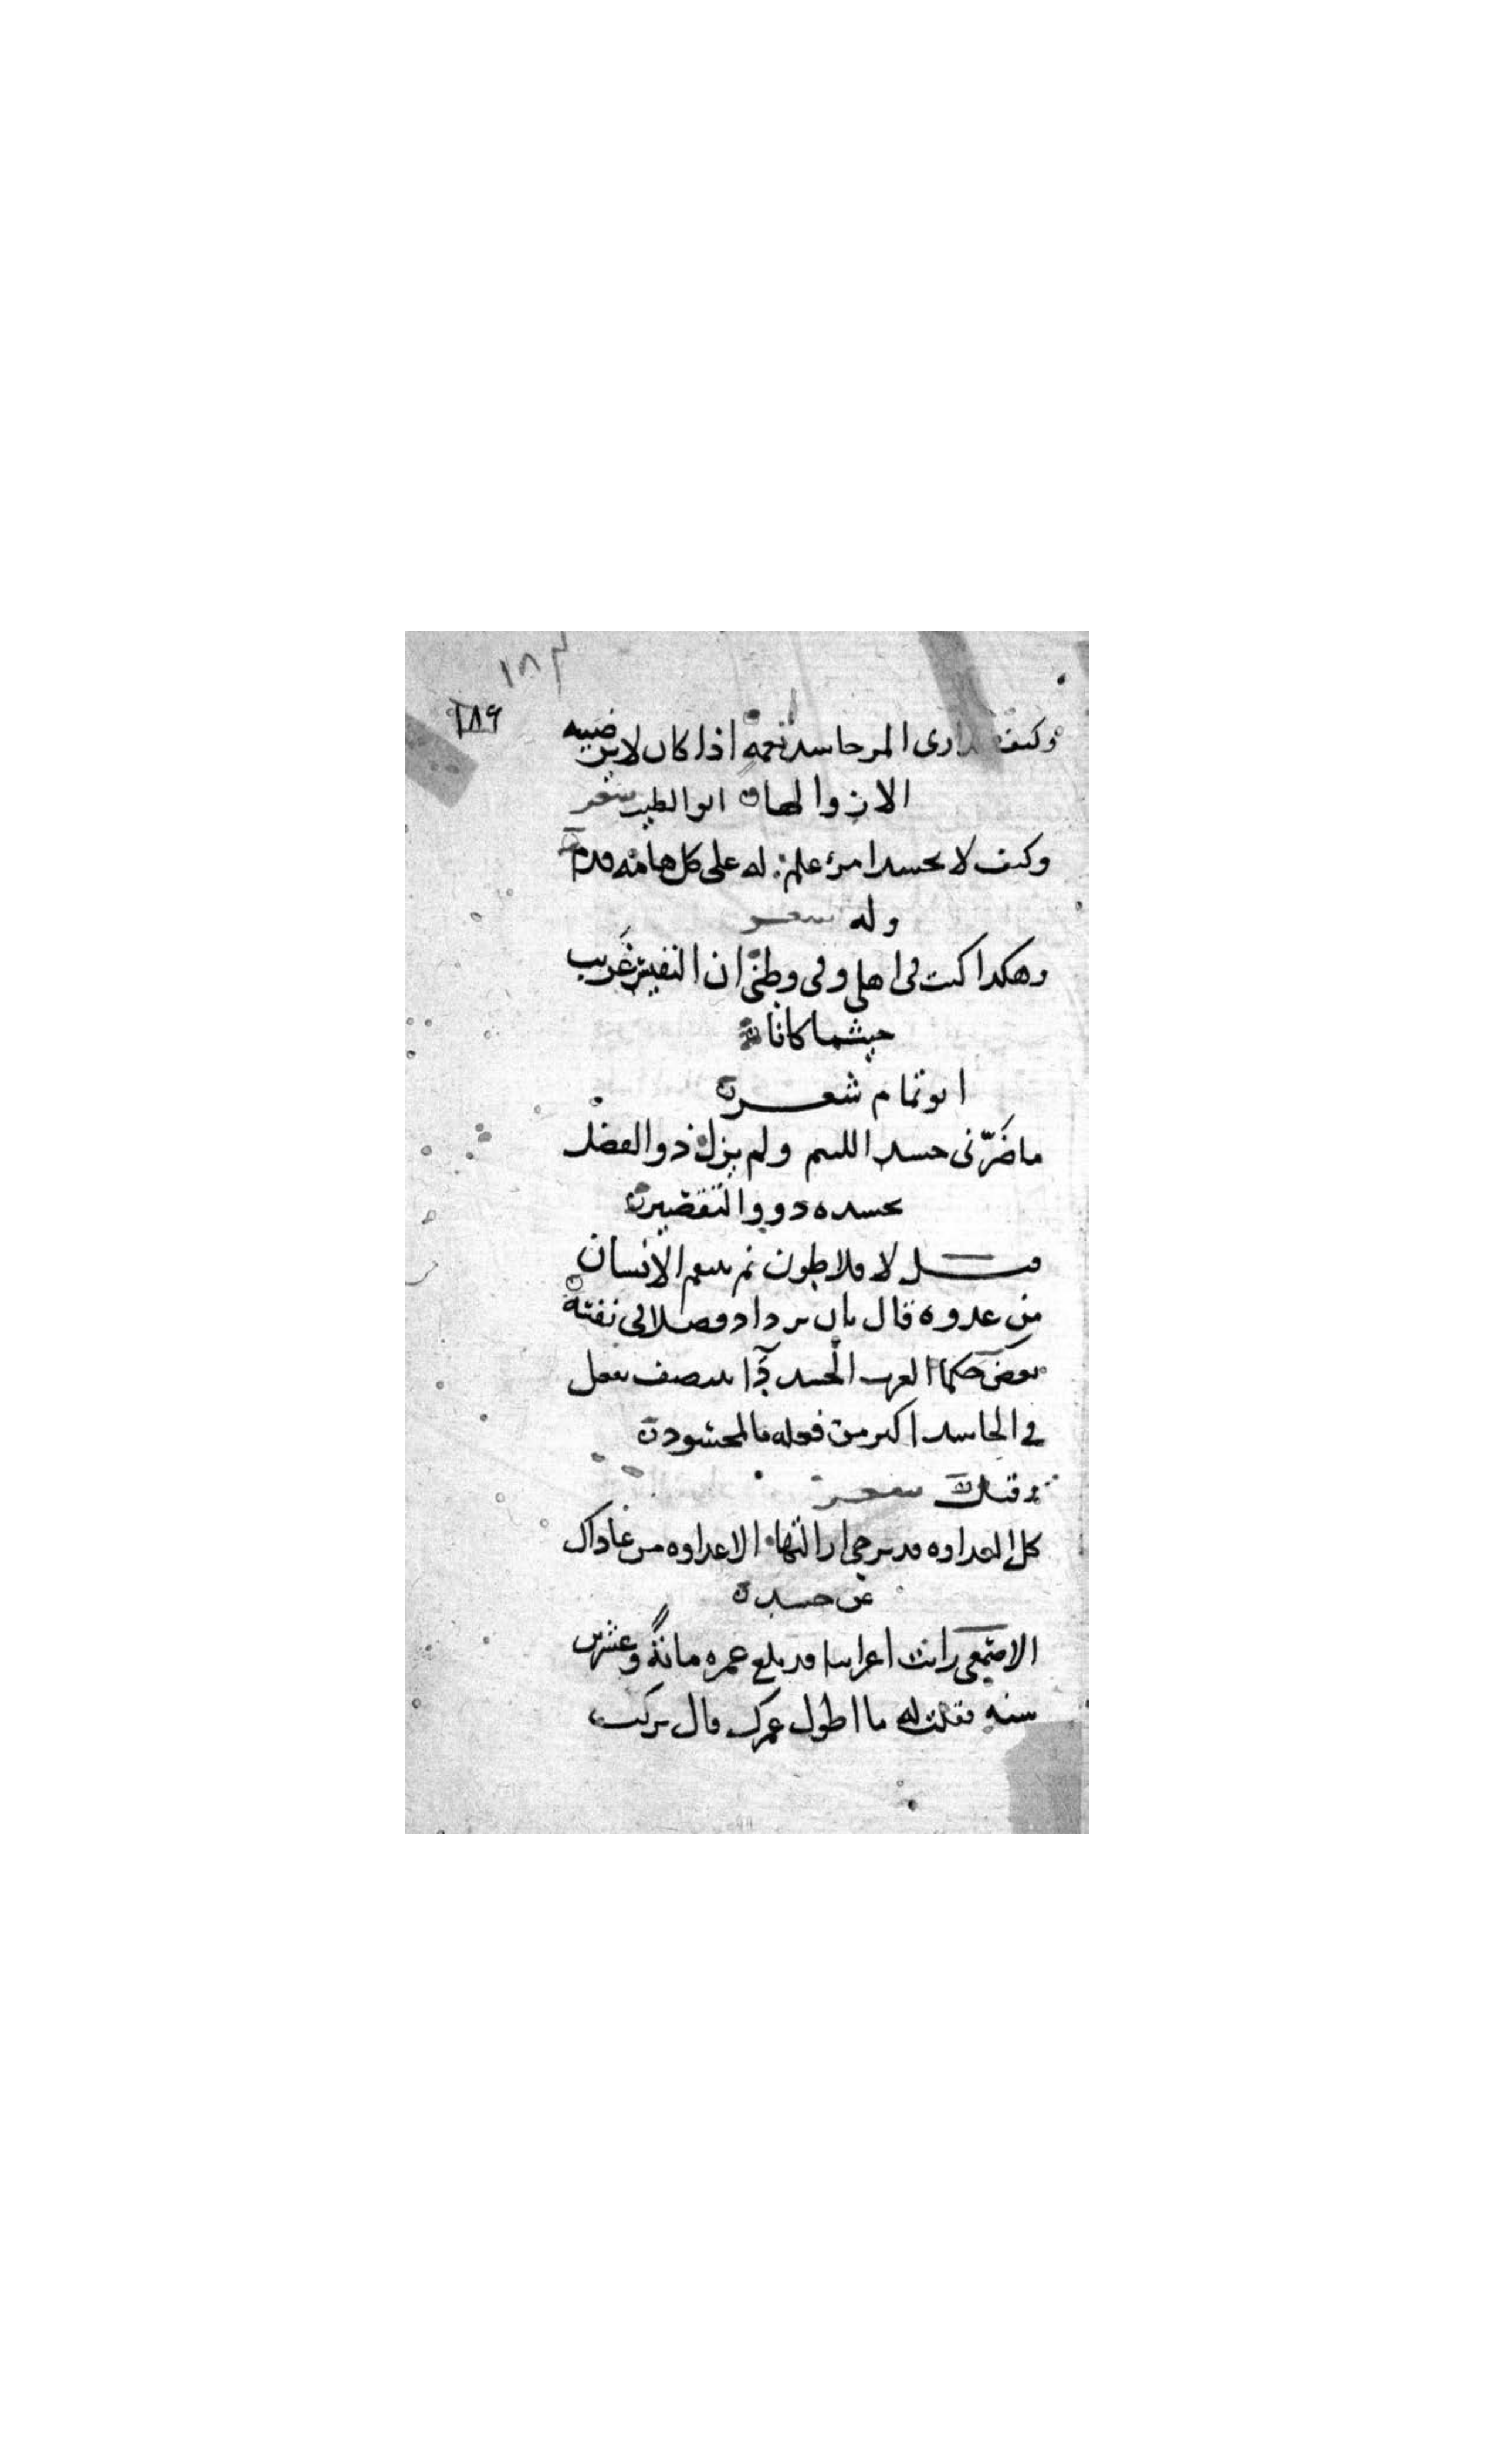 ١٨٣
١٨٩
وكيف يدارى المر حاسد نعمة اذا كان لا يرضيه
الا زوالها ابو الطيب شعر
وكيف لا يحسد امرؤ علم له على كل هامة قدم
وله شعر
وهكذا كنت فى اهلى وفى وطنى ان النفيس غريب
حيثما كانا
ابو تمام شعر
ما ضرّنى حسد اللئيم ولم يزل ذو الفضل
يحسده ذوو التقصير
قيل لافلاطون بم ينتقم الانسان
من عدوه قال بان يزداد فضلا فى نفسه
بعض حكما العرب الحسد داء منصف يفعل
فى الحاسد اكثر من فعله بالمحسود
وقيل شعر
كل العداوه قد يرجى ازالتها الا عداوه من عاداك
عن حسد
الاصمعى رايت اعرابيا قد بلغ عمره مائة وعشرين
سنه فقلت له ما اطول عمرك قال تركت